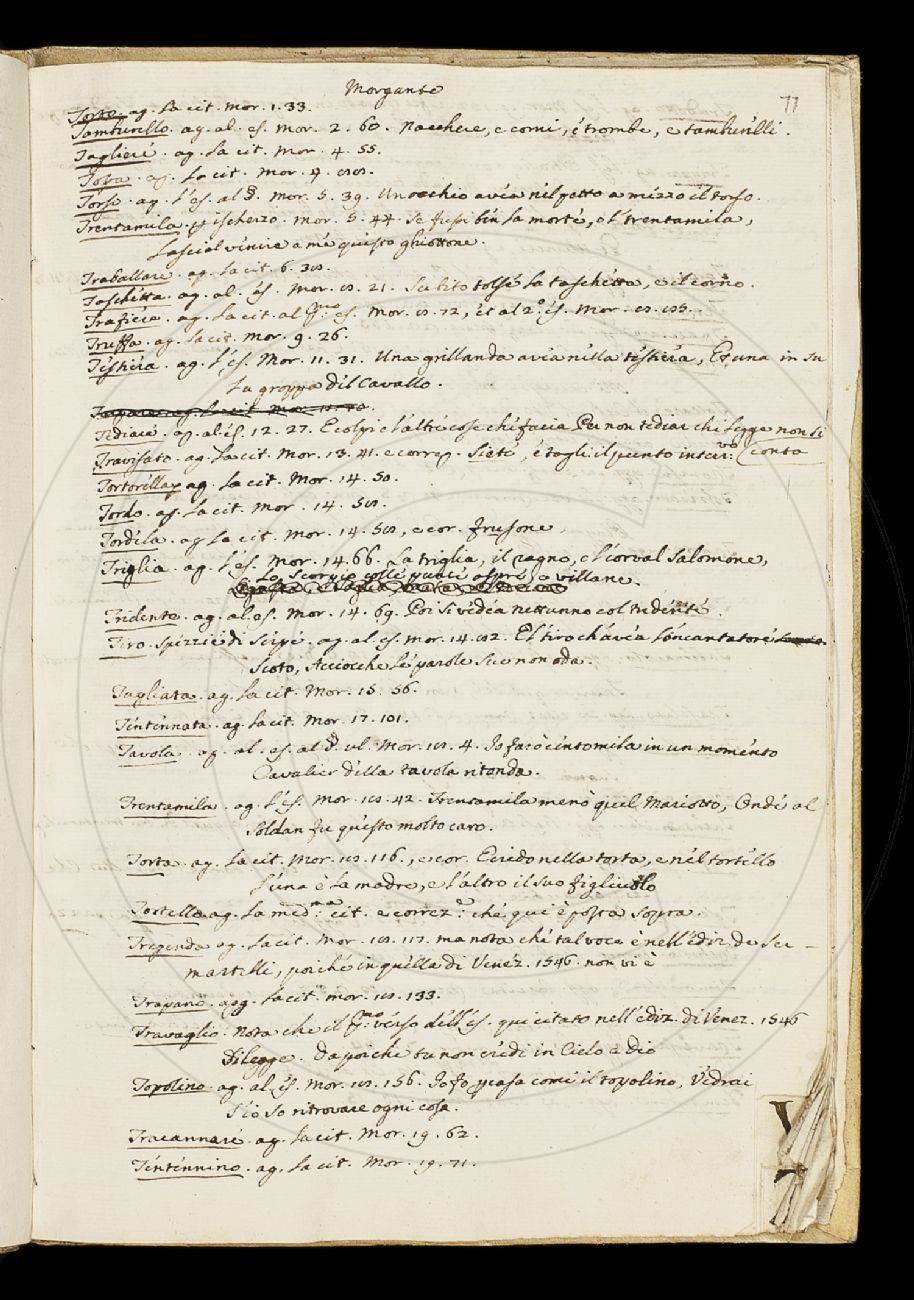 Morgante
77
Torto. ag. la cit. Mor. 1. 33.
Tamburello. ag. al. es. Mor. 2. 60. Nacchere, e corni, e trombe, e tamburelli.
Tagliere. ag. la cit. Mor. 4. 55.
ag. la cit. Mor. 4.
Torso. ag. l'es. al §. Mor. 5. 39. Un occhio avea nel petto a mezzo il torso.
Trentamila. p ischerzo. Mor. 5. 44. Se fussi ben la morte, o l trentamila,
Lascial venire a me questo ghiottone.
Traballare. ag. la cit. 6.
Taschetta. ag. al. es. Mor. 21. Subito tolse la taschetta, e il corno.
Trafiera. ag. la cit. al pmo es. Mor. 72, et al 2.º es. Mor.
Truffa. ag. la cit. Mor. 9. 26.
Testiera. ag. l'es. Mor. 11. 31. Una grillanda avea nella testiera, Et una in su
La groppa del Cavallo.
Tediare. ag. al es. 12. 27. E colpi e l'altre cose che facea Per non tediar chi legge non si
Travisato. ag. la cit. Mor. 13. 41. e correg. Siete, e togli il punto interr.vo (conta
Tortorella. ag. la cit. Mor. 14. 50.
Tordo. ag. la cit. Mor. 14.
Tordela. ag. la cit. Mor. 14. e cor. frusone.
Triglia. ag. l'es. Mor. 14. 66. La triglia, il ragno, e l corval Salomone,
Lo Scorpio colle punte aspre, e villane.
Tridente. ag. al. es. Mor. 14. 69. Poi si vedea nettunno col tridente.
Tiro. Spezzie di Serpe. ag. al. es. Mor. 14. El tiro ch'avea l'oncantatore
Scoto, Acciocche le parole sue non oda.
Tagliata. ag. la cit. Mor. 15. 56.
Tentennata. ag. la cit. Mor. 17. 101.
Tavola. ag. al. es. al §. ul. Mor. 4. Io farò centomila in un momento
Cavalier della tavola ritonda.
Trentamila. ag. l'es. Mor. 42. Trentamila menò quel Mariotto, Onde al
Soldan fu questo molto caro.
Torta. ag. la cit. Mor. 116., e cor. E credo nella torta, e nel tortello
L'una è la madre, e l'altro il suo figliuolo
Tortello. ag. la med.ma cit. e correz.e che qui è posta sopra.
Tregenda. ag. la cit. Mor. 117. ma nota che tal voce è nell'ediz. de Ser-
martelli, poiche in quella di Venez. 1546. non vi è
Trapano. ag. la cit. Mor. 133.
Travaglio. Nota che il pmo verso dell'es. qui citato nell'ediz. di Venez. 1546
Si legge. Da poiche tu non credi in Cielo a Dio
Topolino. ag. al. es. Mor. 156. Io fo p casa come il topolino, Vedrai
S'io so ritrovare ogni cosa.
Tracannare. ag. la cit. Mor. 19. 62.
Tentennino. ag. la cit. Mor. 19. 71.